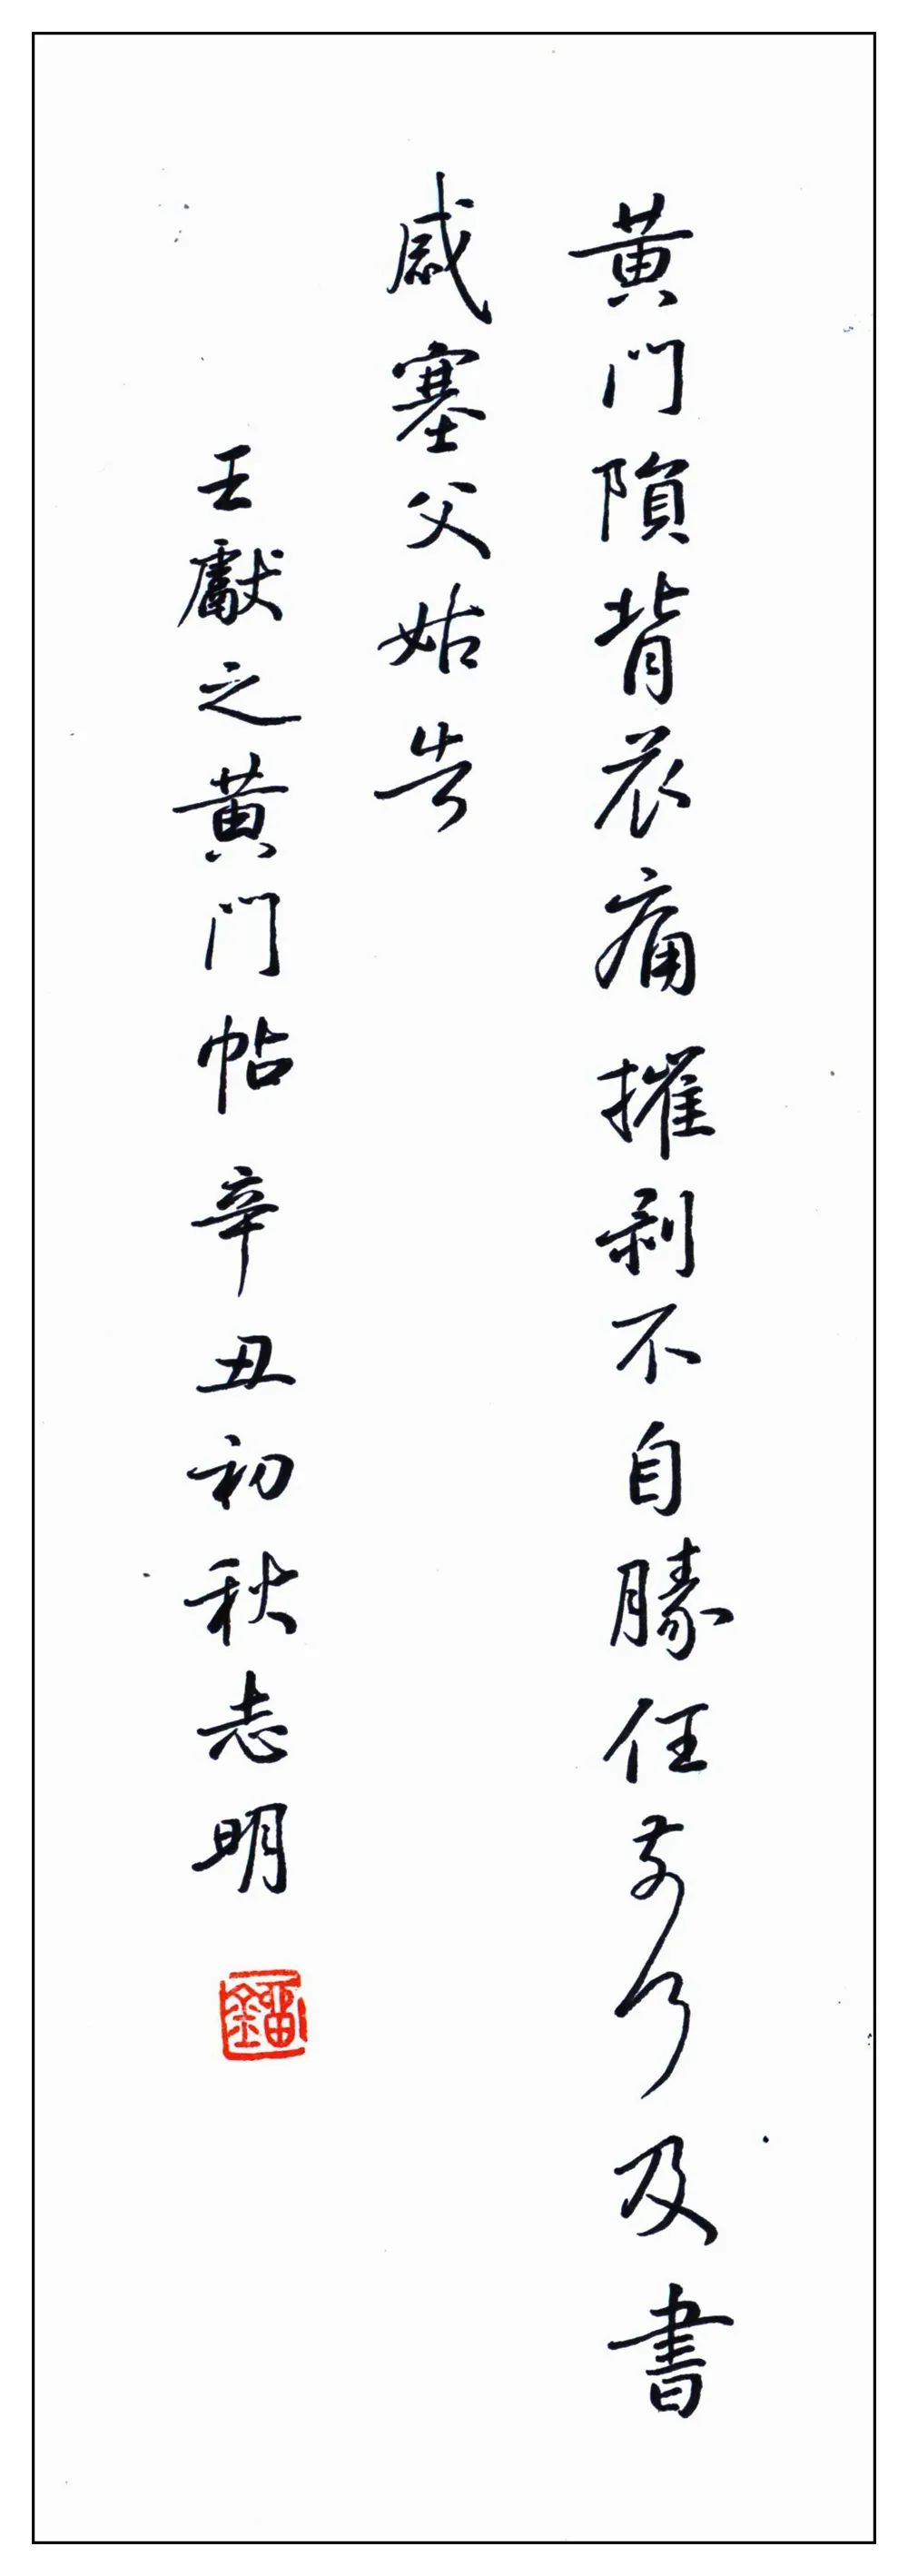 黄門隕背哀痛摧剥不自勝任奈何及書
感塞父姑告
王獻之黄門帖辛丑初秋志明